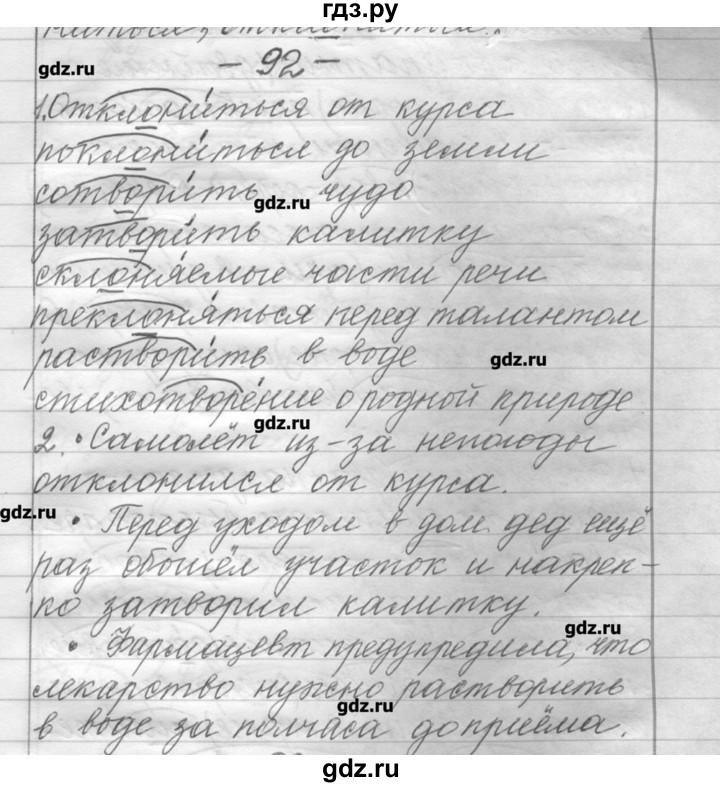 гдз.ру
gdz.ru
- 92 -
1. Отклониться от курса
поклониться до земли
сотворить чудо
gdz.ru
затворить калитку
склоняемые части речи
преклоняться перед талантом
растворить в воде
gdz.ru
стихотворение о родной природе
gdz.ru
2. • Самолёт из-за непогоды
отклонился от курса.
gdz.ru
• Перед уходом в дом дед ещё
раз обошёл участок и накреп-
ко затворил калитку.
gdz.ru
• Фармацевт предупредила, что
лекарство нужно растворить
gdz.ru
в воде за полчаса до приёма.
gdz.ru